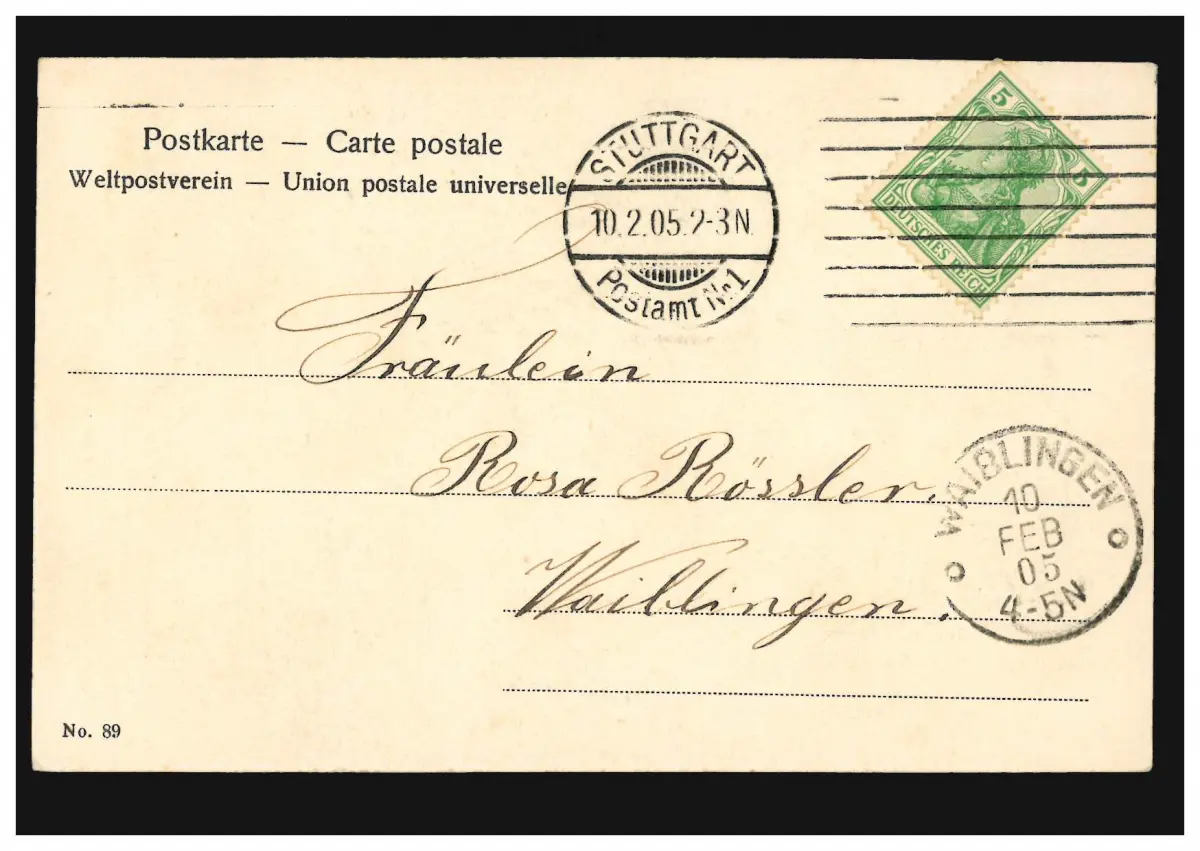 Postkarte — Carte postale
Weltpostverein — Union postale universelle
STUTTGART
10.2.05.2-3N.
Postamt No1
5
5
DEUTSCHES REICH
Fräulein
Rosa Rössler.
Waiblingen.
WAIBLINGEN
10
FEB
05
4-5N
No. 89